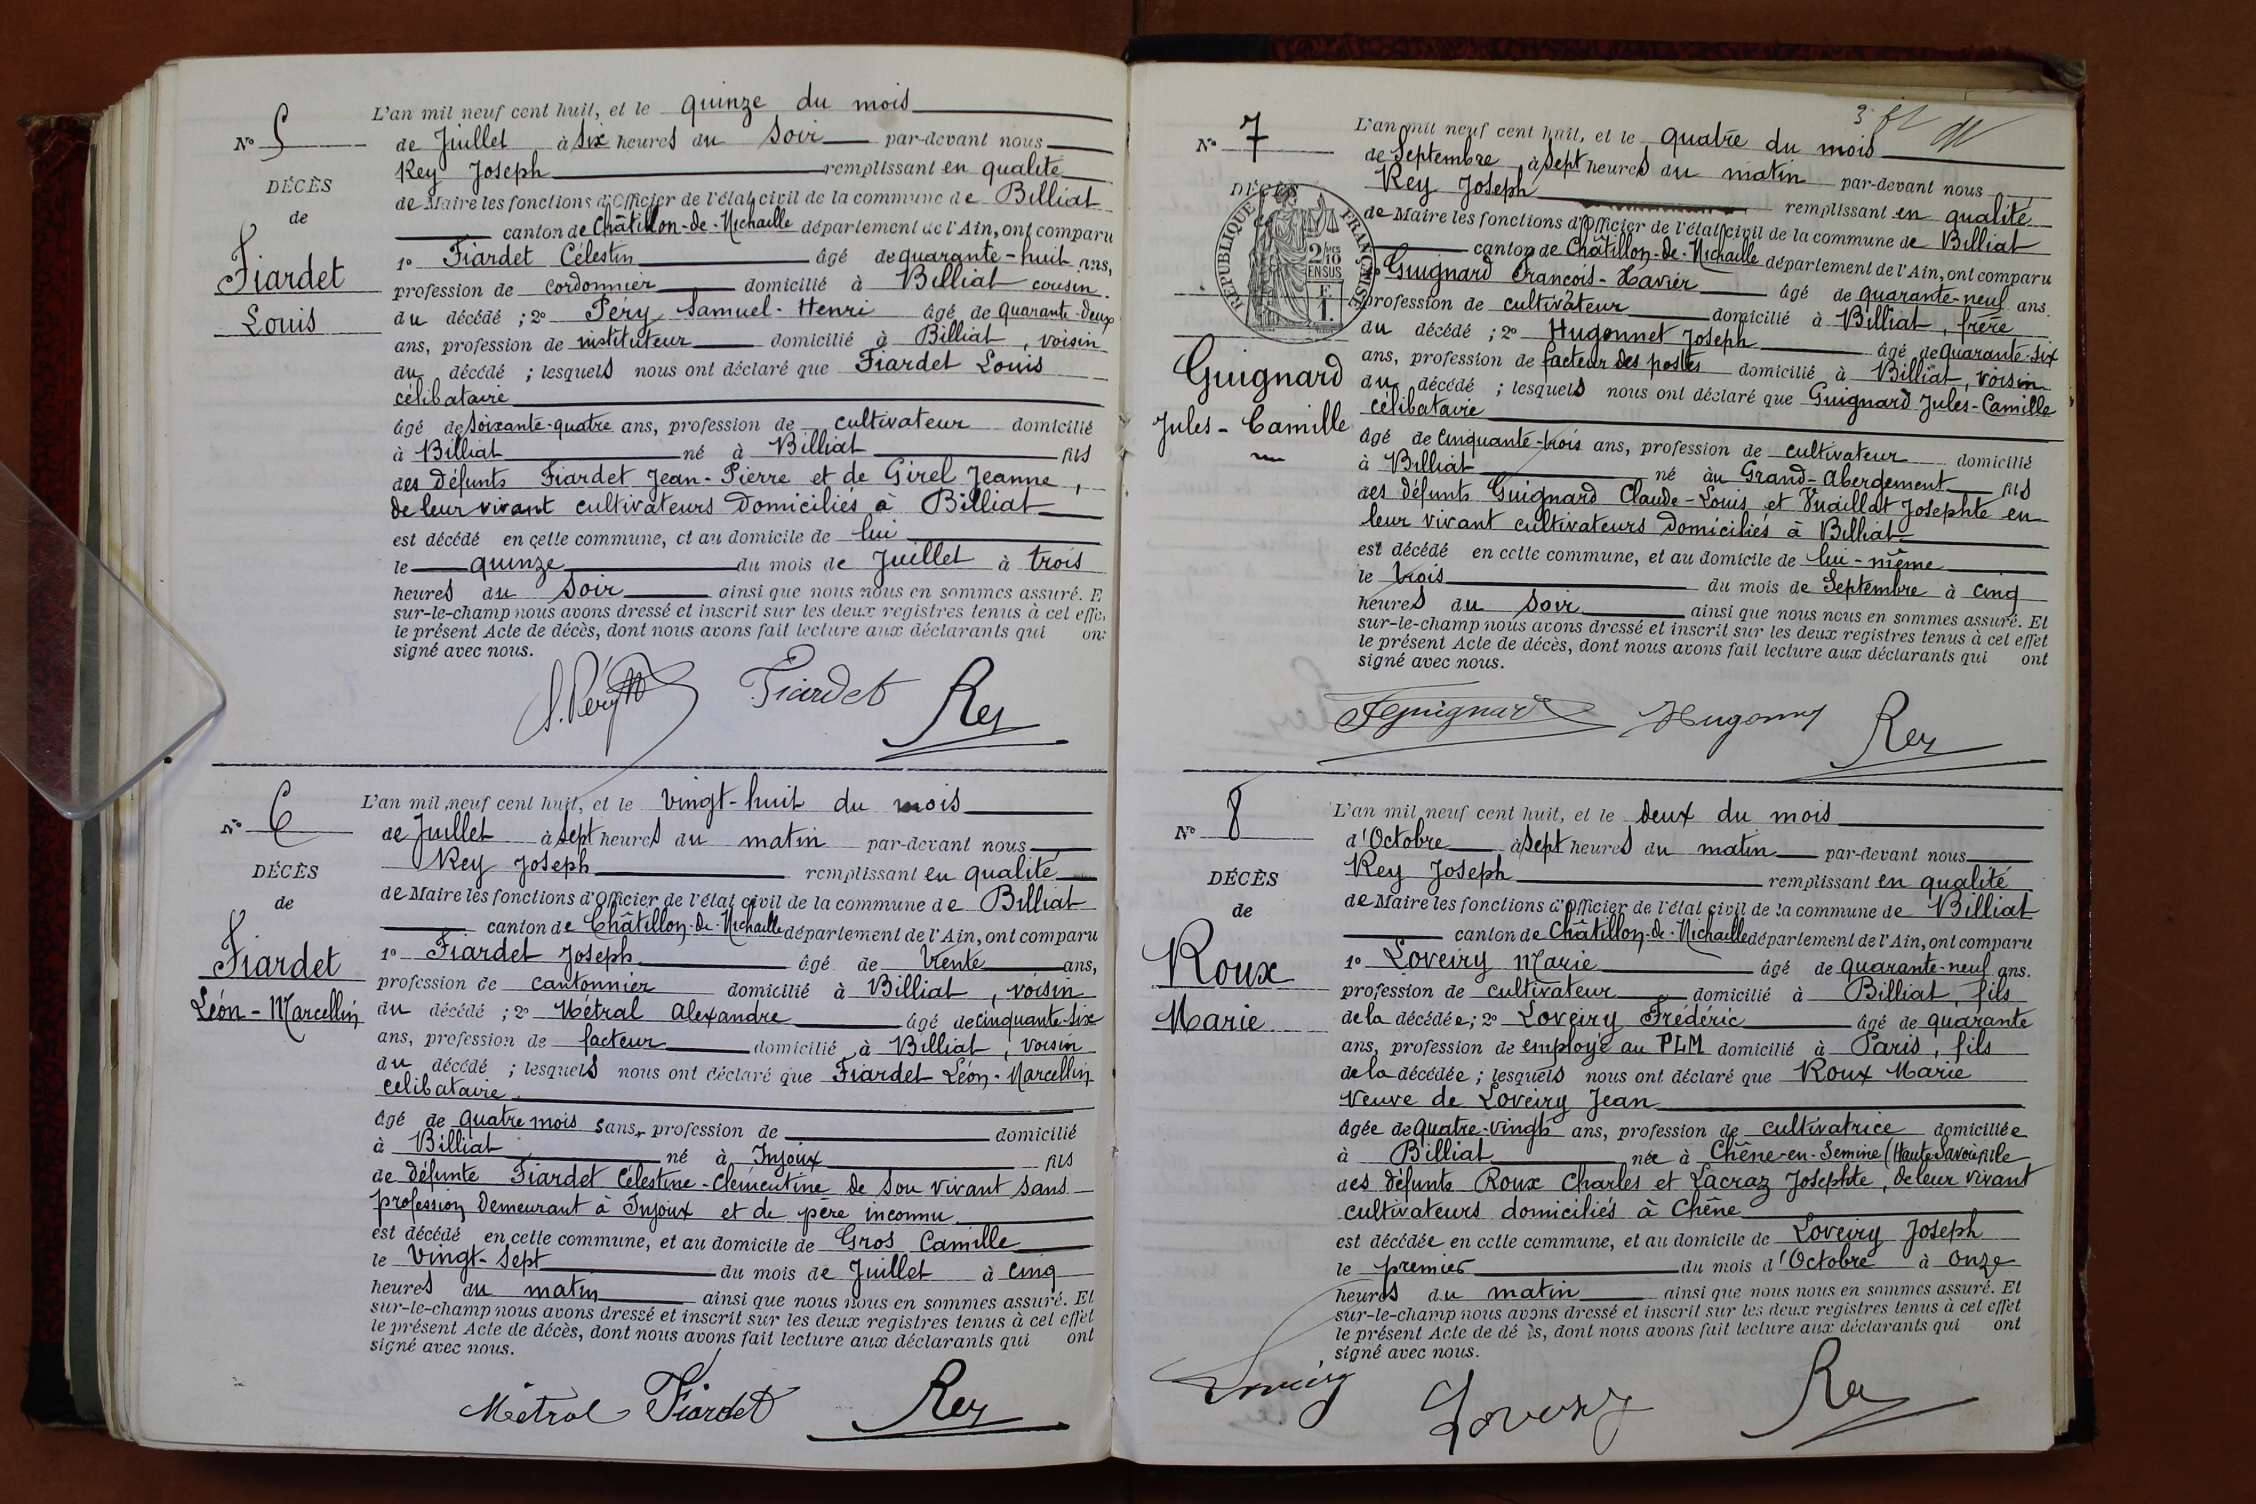 L'an mil neuf cent huit, et le quinze du mois
N° 5
de Juillet à six heures du soir par-devant nous
Rey Joseph remplissant en qualité
DÉCÈS
de Maire les fonctions d'Officier de l'état civil de la commune de Billiat
de
canton de Châtillon-de-Michaille département de l'Ain, ont comparu
Fiardet
1° Fiardet Célestin âgé de quarante-huit ans,
profession de cordonnier domicilié à Billiat cousin
Louis
du décédé ; 2° Péry Samuel-Henri âgé de quarante-deux
ans, profession de instituteur domicilié à Billiat, voisin
du décédé ; lesquels nous ont déclaré que Fiardet Louis
célibataire
âgé de soixante-quatre ans, profession de cultivateur domicilié
à Billiat né à Billiat fils
des défunts Fiardet Jean-Pierre et de Girel Jeanne,
de leur vivant cultivateurs domiciliés à Billiat
est décédé en cette commune, et au domicile de lui
le quinze du mois de Juillet à trois
heures du soir ainsi que nous nous en sommes assuré. E
sur-le-champ nous avons dressé et inscrit sur les deux registres tenus à cet effe
le présent Acte de décès, dont nous avons fait lecture aux déclarants qui on
signé avec nous.
S. Péry Fiardet Rey
L'an mil neuf cent huit, et le vingt-huit du mois
N° 6
de Juillet à sept heures du matin par-devant nous
Rey Joseph remplissant en qualité
DÉCÈS
de Maire les fonctions d'Officier de l'état civil de la commune de Billiat
de
canton de Châtillon-de-Michaille département de l'Ain, ont comparu
Fiardet
1° Fiardet Joseph âgé de trente ans,
profession de cantonnier domicilié à Billiat, voisin
Léon-Marcellin
du décédé ; 2° Métral Alexandre âgé de cinquante-six
ans, profession de facteur domicilié à Billiat, voisin
du décédé ; lesquels nous ont déclaré que Fiardet Léon-Marcellin
célibataire
âgé de quatre mois sans profession de domicilié
à Billiat né à Injoux fils
de défunte Fiardet Célestine-Clémentine de son vivant sans
profession demeurant à Injoux et de père inconnu
est décédé en cette commune, et au domicile de Gros Camille
le vingt-sept du mois de Juillet à cinq
heures du matin ainsi que nous nous en sommes assuré. Et
sur-le-champ nous avons dressé et inscrit sur les deux registres tenus à cet effet
le présent Acte de décès, dont nous avons fait lecture aux déclarants qui ont
signé avec nous.
Métral Fiardet Rey
L'an mil neuf cent huit, et le quatre du mois
N° 7
de Septembre à sept heures du matin par-devant nous
Rey Joseph remplissant en qualité
DÉCÈS
de Maire les fonctions d'Officier de l'état civil de la commune de Billiat
RÉPUBLIQUE FRANÇAISE
2/10 EN SUS
F. 1.
canton de Châtillon-de-Michaille département de l'Ain, ont comparu
Guignard François-Xavier âgé de quarante-neuf ans.
profession de cultivateur domicilié à Billiat, frère
du décédé ; 2° Hugonnet Joseph âgé de quarante-six
Guignard
ans, profession de facteur des postes domicilié à Billiat, voisin
du décédé ; lesquels nous ont déclaré que Guignard Jules-Camille
Jules-Camille
célibataire
âgé de cinquante-trois ans, profession de cultivateur domicilié
à Billiat né au Grand-Abergement fils
des défunts Guignard Claude-Louis et Vuaillat Josephte en
leur vivant cultivateurs domiciliés à Billiat
est décédé en cette commune, et au domicile de lui-même
le trois du mois de Septembre à cinq
heures du soir ainsi que nous nous en sommes assuré. Et
sur-le-champ nous avons dressé et inscrit sur les deux registres tenus à cet effet
le présent Acte de décès, dont nous avons fait lecture aux déclarants qui ont
signé avec nous.
F Guignard Hugonnet Rey
L'an mil neuf cent huit, et le deux du mois
N° 8
d'Octobre à sept heures du matin par-devant nous
Rey Joseph remplissant en qualité
DÉCÈS
de Maire les fonctions d'Officier de l'état civil de la commune de Billiat
de
canton de Châtillon-de-Michaille département de l'Ain, ont comparu
Roux
1° Loveiry Marie âgé de quarante-neuf ans.
profession de cultivateur domicilié à Billiat, fils
Marie
de la décédée ; 2° Loveiry Frédéric âgé de quarante
ans, profession de employé au PLM domicilié à Paris, fils
de la décédée ; lesquels nous ont déclaré que Roux Marie
veuve de Loveiry Jean
âgée de quatre-vingts ans, profession de cultivatrice domiciliée
à Billiat née à Chêne-en-Semine (Haute Savoie fille
des défunts Roux Charles et Lacraz Josephte, de leur vivant
cultivateurs domiciliés à Chêne
est décédée en cette commune, et au domicile de Loveiry Joseph
le premier du mois d'Octobre à onze
heures du matin ainsi que nous nous en sommes assuré. Et
sur-le-champ nous avons dressé et inscrit sur les deux registres tenus à cet effet
le présent Acte de dé ès, dont nous avons fait lecture aux déclarants qui ont
signé avec nous.
Loveiry Loveiry Rey